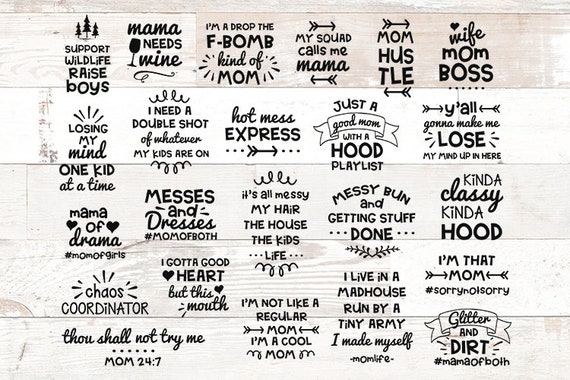 SUPPORT
WILDLIFE
RAISE
boys
mama
NEEDS
wine
I'M A DROP THE
F-BOMB
kind of
MOM
MY SQUAD
calls me
mama
MOM
HUS
TLE
wife
mom
BOSS
LOSING
MY
mind
ONE KID
at a time
I NEED A
DOUBLE SHOT
of whatever
MY KIDS ARE ON
hot mess
EXPRESS
JUST A
good mom
WITH A
HOOD
PLAYLIST
y'all
gonna make me
LOSE
MY MIND UP IN HERE
mama
OF
drama
#momofgirls
MESSES
and
Dresses
#MOMOFBOTH
it's all messy
MY HAIR
THE HOUSE
THE KIDS
LIFE
MESSY BUN
and
GETTING STUFF
DONE
KINDA
classy
KINDA
HOOD
chaos
COORDINATOR
I GOTTA GOOD
HEART
but this
mouth
I'M NOT LIKE A
REGULAR
MOM
I'M A COOL
MOM
I LIVE IN A
MADHOUSE
RUN BY A
TINY ARMY
I made myself
-momlife-
I'M THAT
MOM
#sorrynotsorry
thou shall not try me
MOM 24:7
Glitter
AND
DIRT
#mamaofboth